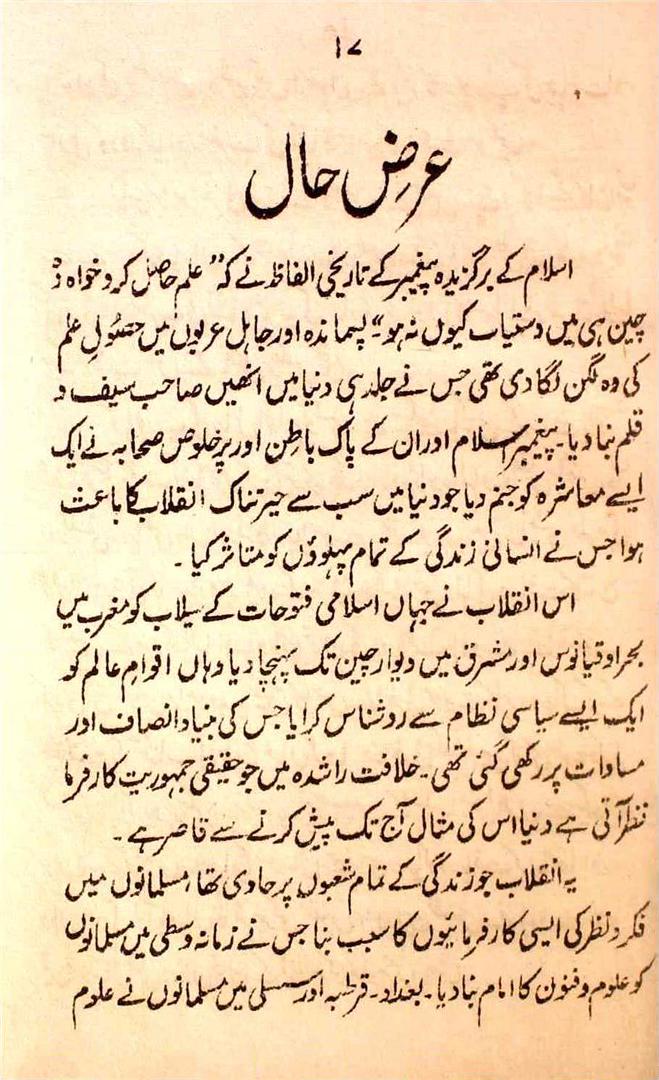 ۱۷
عرضِ حال
اسلام کے برگزیدہ پیغمبر کے تاریخی الفاظ نے کہ "علم حاصل کرو خواہ وہ
چین ہی میں دستیاب کیوں نہ ہو" پسماندہ اور جاہل عربوں میں حصولِ علم
کی وہ لگن لگا دی تھی جس نے جلد ہی دنیا میں انھیں صاحب سیف و
قلم بنا دیا۔ پیغمبر اسلام اور ان کے پاک باطن اور پر خلوص صحابہ نے ایک
ایسے معاشرہ کو جنم دیا جو دنیا میں سب سے حیرتناک انقلاب کا باعث
ہوا جس نے انسانی زندگی کے تمام پہلوؤں کو متاثر کیا۔
اس انقلاب نے جہاں اسلامی فتوحات کے سیلاب کو مغرب میں
بحر اوقیانوس اور مشرق میں دیوار چین تک پہنچا دیا وہاں اقوامِ عالم کو
ایک ایسے سیاسی نظام سے روشناس کرایا جس کی بنیاد انصاف اور
مساوات پر رکھی گئی تھی۔ خلافت راشدہ میں جو حقیقی جمہوریت کارفرما
نظر آتی ہے دنیا اس کی مثال آج تک پیش کرنے سے قاصر ہے۔
یہ انقلاب جو زندگی کے تمام شعبوں پر حاوی تھا، مسلمانوں میں
فکر و نظر کی ایسی کارفرمائیوں کا سبب بنا جس نے زمانہ وسطیٰ میں مسلمانوں
کو علوم و فنون کا امام بنا دیا۔ بغداد۔ قرطبہ اور سسلی میں مسلمانوں نے علوم